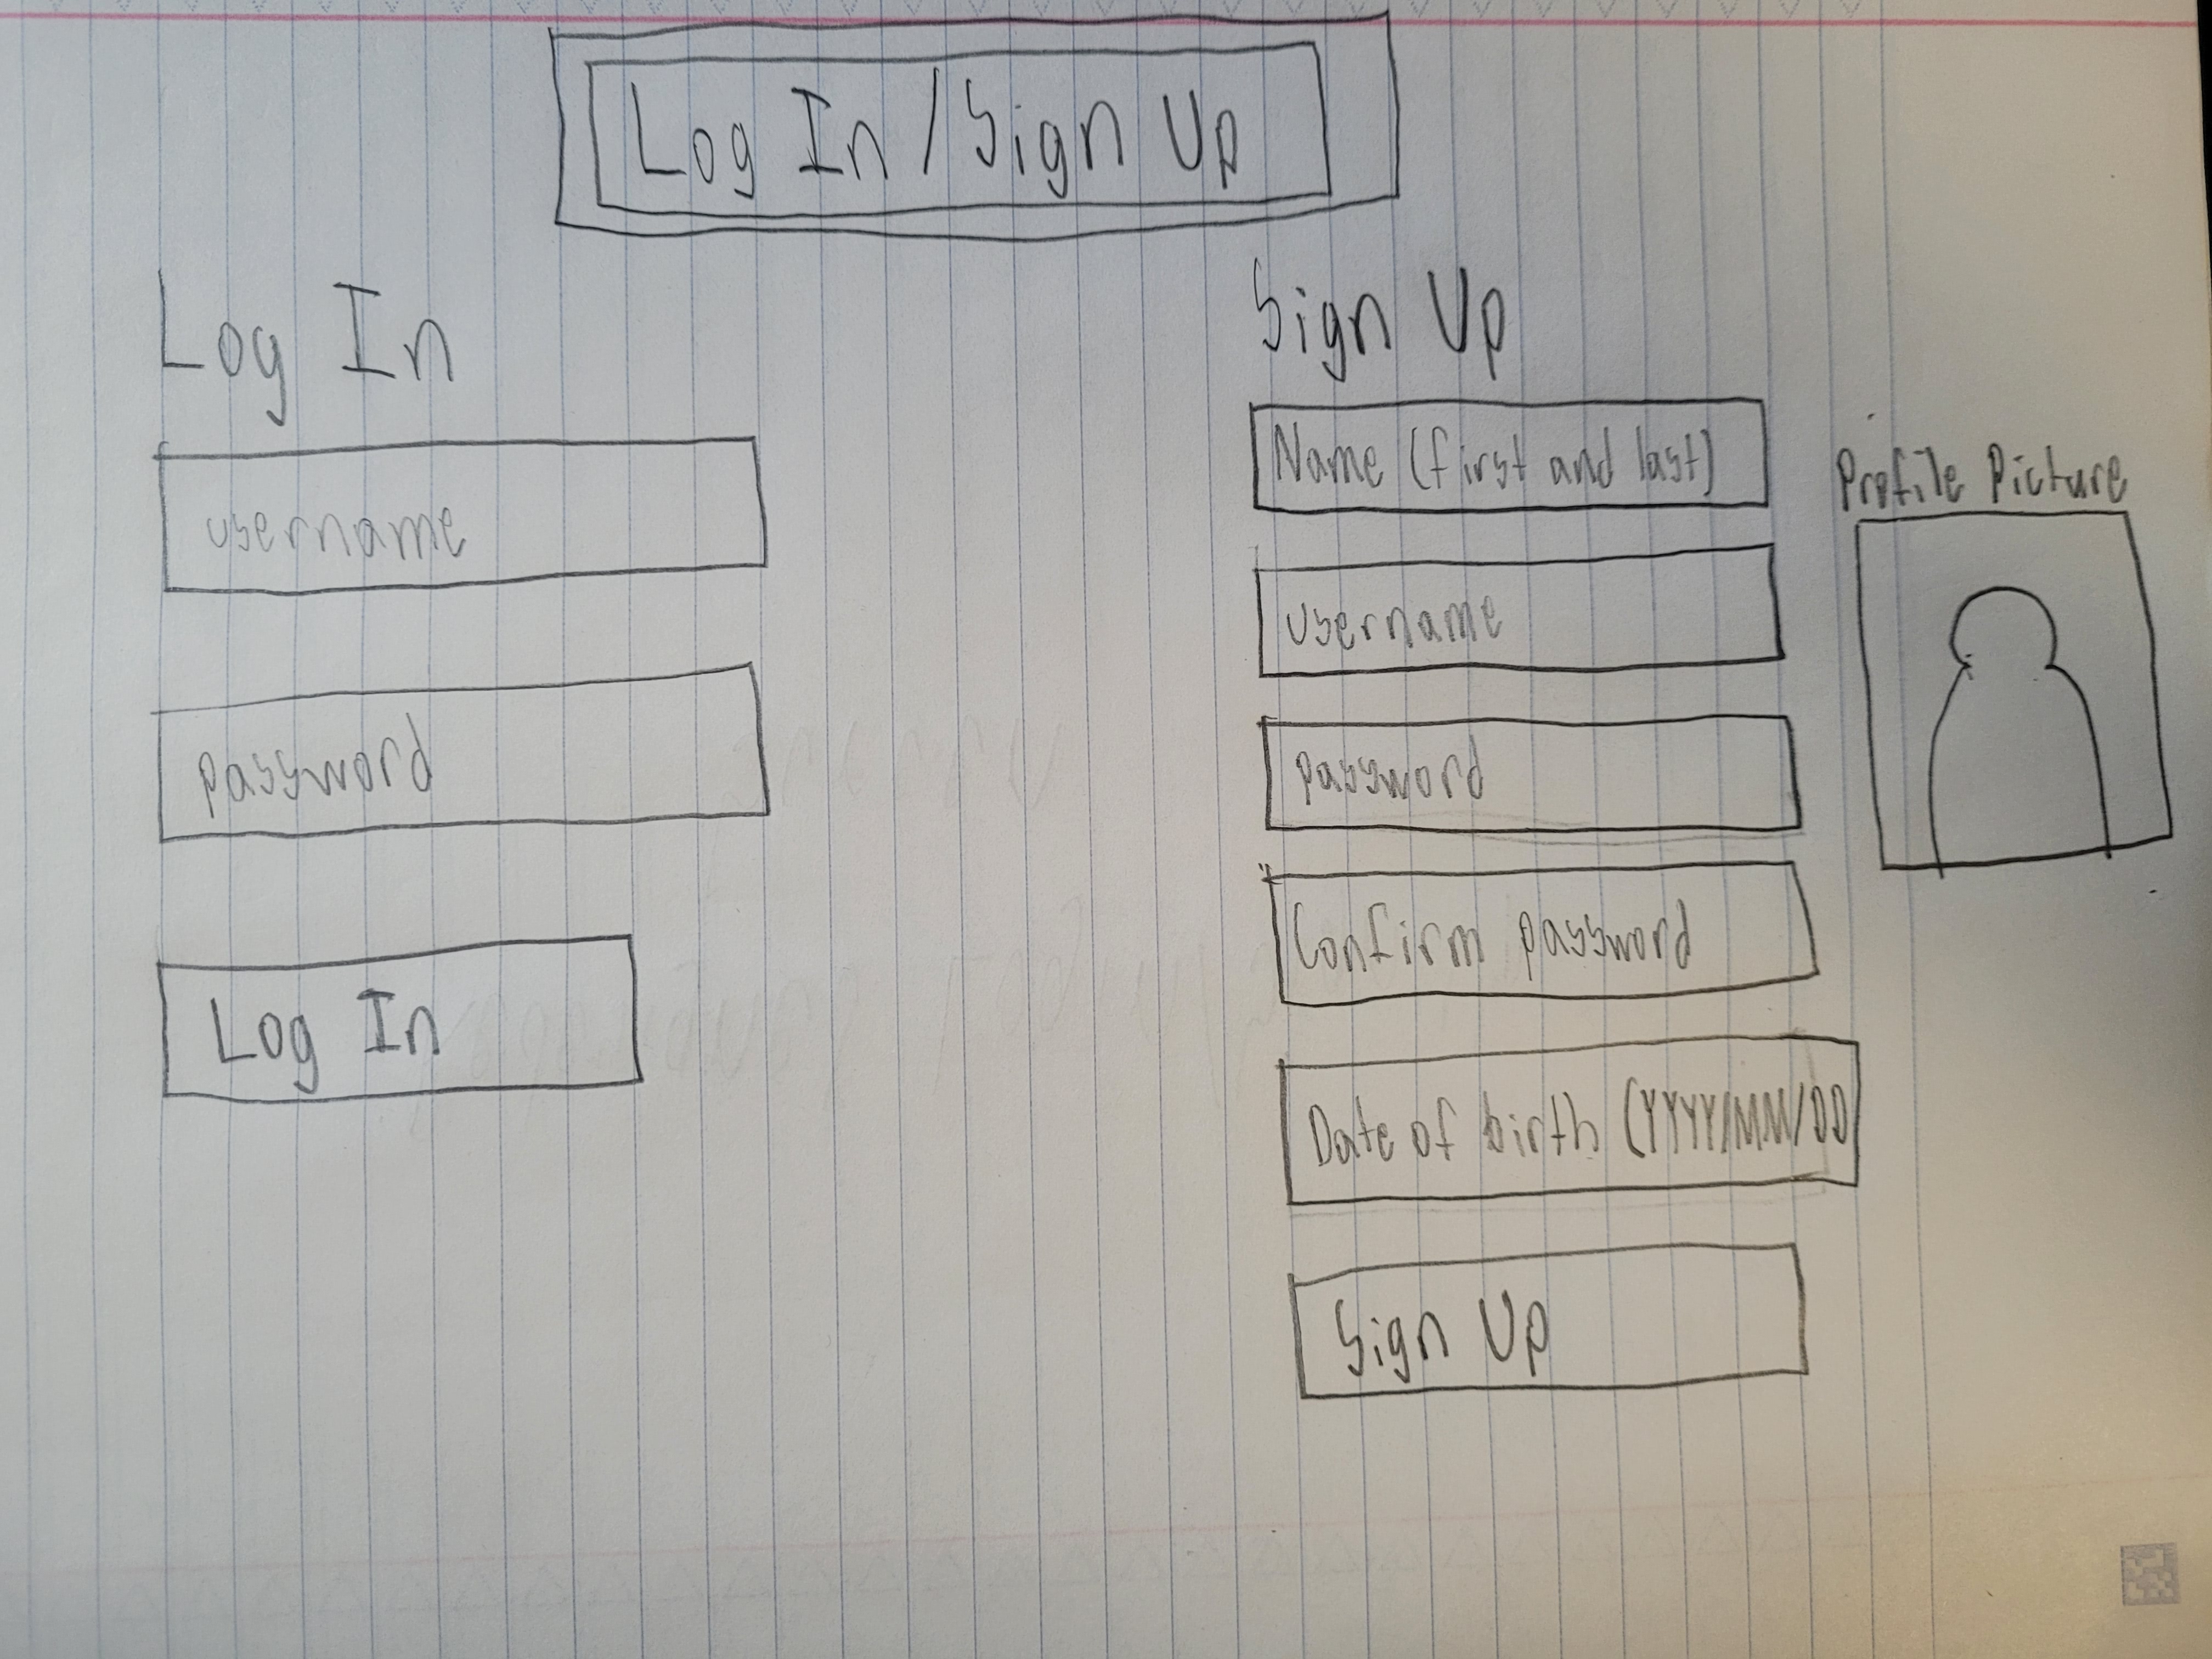 Log In / Sign Up
Log In
username
password
Log In
Sign Up
Name (first and last)
username
password
Confirm password
Date of birth (YYYY/MM/DD
Sign Up
Profile Picture